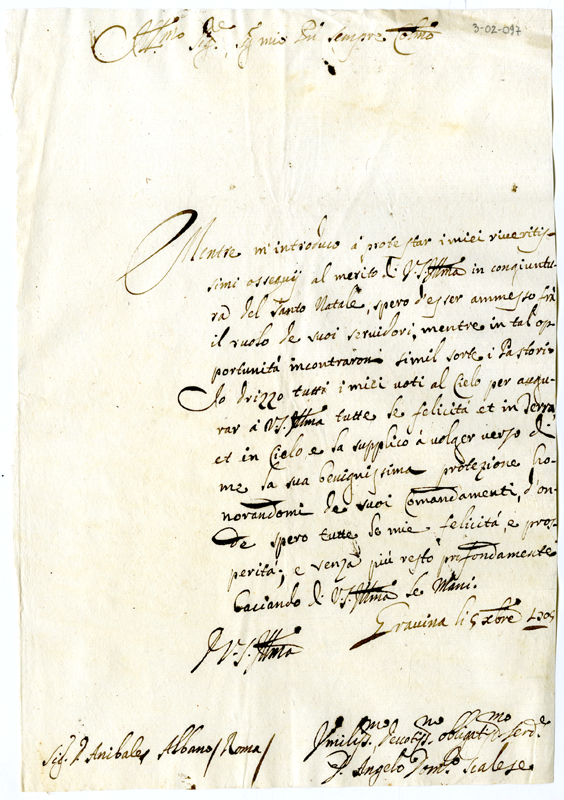 3-02-097
Ill.mo Sig.re Sig. mio Pn͞ sempre Col͞mo
Mentre m'introduco à protestar i miei riveritis-
simi ossequij al merito di V.S. Ill͞ma in congiuntu-
ra del Santo Natale, spero d'esser ammesso frà
il ruolo de suoi servidori, mentre in tal'op-
portunità incontraron simil sorte i Pastori.
Io drizzo tutti i miei voti al Cielo per augu-
rar à V.S. Ill͞ma tutte le felicità et in Terra
et in Cielo e la supplico à volger verso di
me la sua benignissima protezione ho-
norandomi de suoi Comandamenti, d'on-
de spero tutte le mie felicità, e pros-
perità; e senza più resto profondamente
baciando di V.S. Ill͞ma le Mani.
Gravina li 5 xbre 1705
Di V.S. Ill͞ma
Humiliss.mo Devotiss.mo obligatiss.mo Serd.e
Sig. D. Anibale Albano / Roma /
D. Angelo Dom.co Scalese